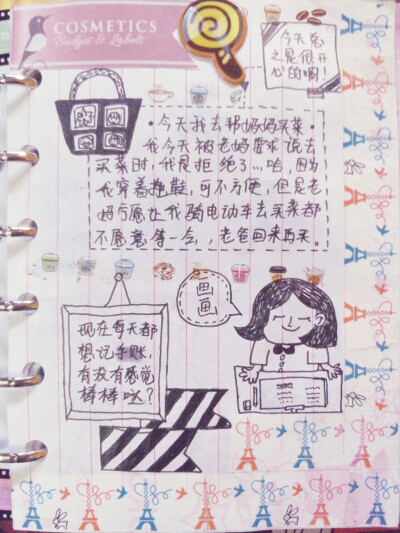 COSMETICS
Budget & Labels
今天总
之是很开
心的啊!
·今天我去帮妈妈买菜·
我今天被老妈要求说去
买菜时,我是拒绝了...哈,因为
我穿着拖鞋,可不方便,但是老
妈宁愿让我骑电动车去买菜都
不愿意等一会,老爸回来再买。
画
画
现在每天都
想记手账,
有没有感觉
棒棒哒?